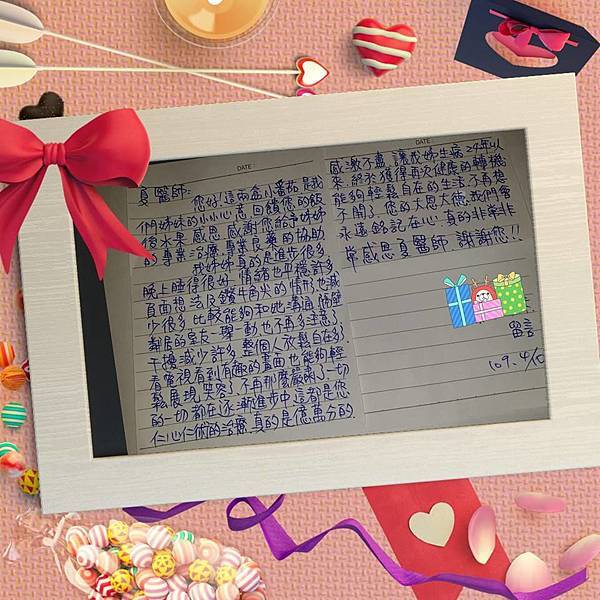 DATE:
夏醫師:
您好!這兩盒小番茄是我
們姊妹的小小心意 回饋您的飯
後水果 感恩 感謝您給予姊姊
的專業治療,專業良藥的協助
我姊姊真的是進步很多
晚上睡得很好,情緒也平穩許多
負面想法及鑽牛角尖的情形也減
少很多 比較能夠和他溝通 隔壁
鄰居的室友 舉動也不再多注意了
干擾減少許多 整個人放鬆自在多了
看電視看到有趣的畫面也能夠輕
鬆展現笑容了 不再那麼嚴肅了 一切
的一切都在逐漸進步中 這都是您
仁心仁術的治療,真的是億萬分的
DATE
感激不盡,讓我姊生病24年以
來,終於獲得再次健康的轉機
能夠輕鬆自在的生活,不再想
不開了,您的大恩大德,我們會
永遠銘記在心,真的非常非
常感恩夏醫師 謝謝您!!
留言
109.4/10